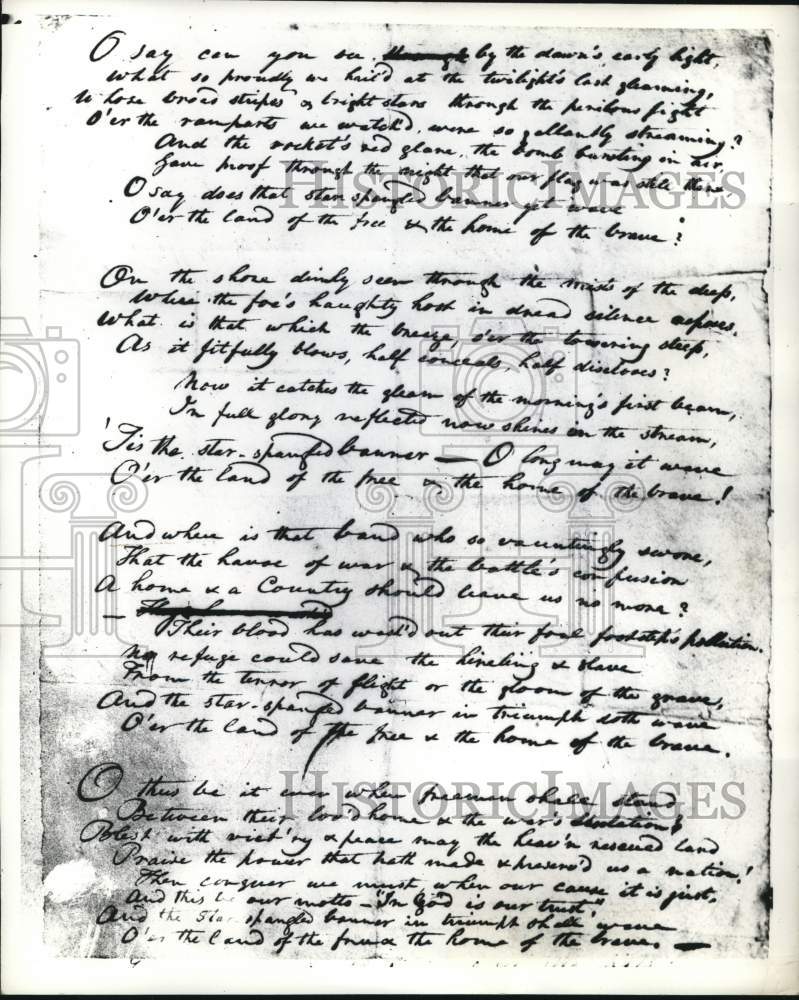 O say can you see, ~~through~~ by the dawn's early light,
What so proudly we hail'd at the twilight's last gleaming,
Whose broad stripes & bright stars through the perilous fight
O'er the ramparts we watch'd, were so gallantly streaming?
And the rocket's red glare, the bomb bursting in air,
Gave proof through the night that our flag was still there
O say does that star-spangled banner yet wave
O'er the land of the free & the home of the brave?
On the shore dimly seen through the mists of the deep,
Where the foe's haughty host in dread silence reposes,
What is that which the breeze, o'er the towering steep,
As it fitfully blows, half conceals, half discloses?
Now it catches the gleam of the morning's first beam,
In full glory reflected now shines in the stream,
'Tis the star-spangled banner — O long may it wave
O'er the land of the free & the home of the brave!
And where is that band who so vauntingly swore,
That the havoc of war & the battle's confusion
A home & a Country should leave us no more?
—
Their blood has wash'd out their foul footstep's pollution.
No refuge could save the hireling & slave
From the terror of flight or the gloom of the grave,
And the star-spangled banner in triumph doth wave
O'er the land of the free & the home of the brave.
O thus be it ever when freemen shall stand
Between their lov'd home & the war's desolation!
Blest with vict'ry & peace may the heav'n rescued land
Praise the power that hath made & preserv'd us a nation!
Then conquer we must, when our cause it is just,
And this be our motto - "In God is our trust,"
And the star-spangled banner in triumph shall wave
O'er the land of the free & the home of the brave. —
HISTORIC IMAGES
HISTORIC IMAGES